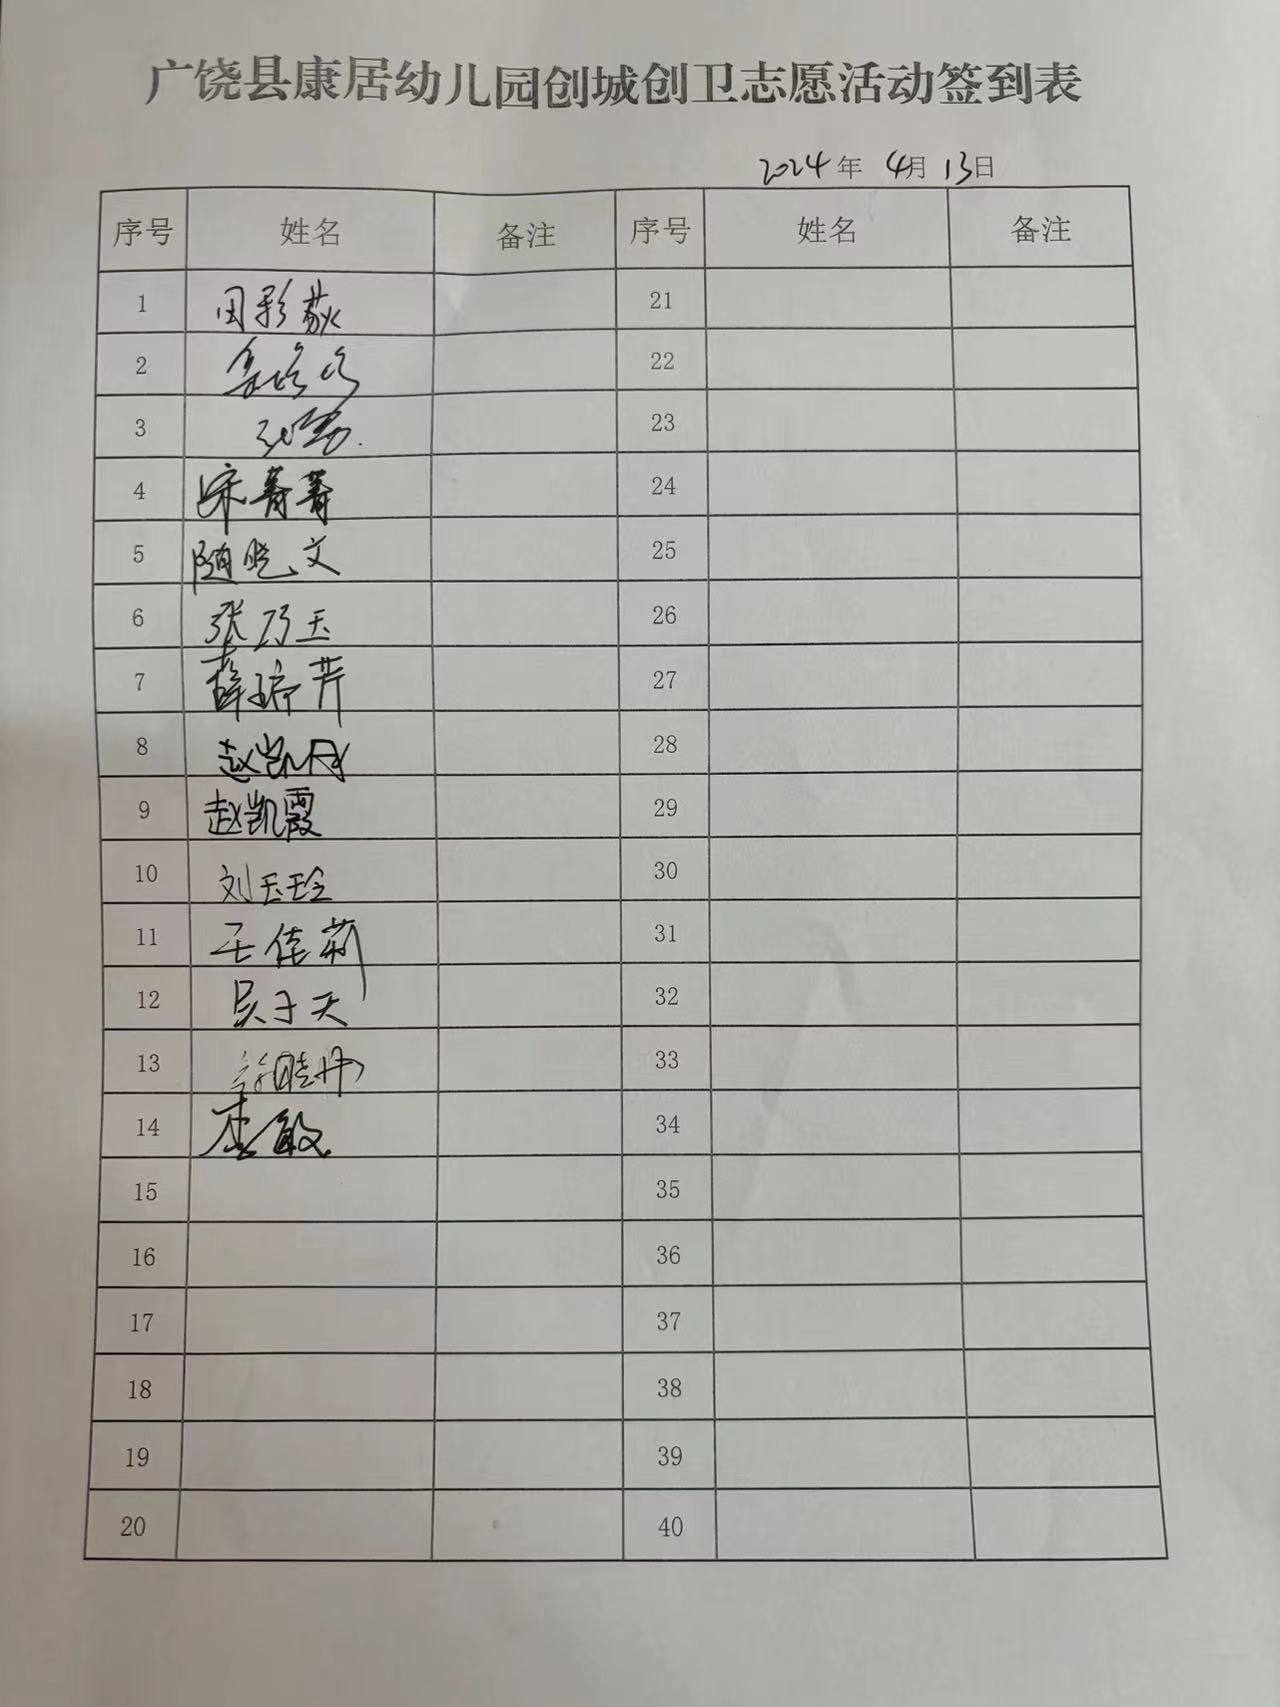 广饶县康居幼儿园创城创卫志愿活动签到表
2024年 4月13日
序号 姓名 备注 序号 姓名 备注
1 田彩荻 21
2 22
3 23
4 宋菁菁 24
5 随晓文 25
6 张乃玉 26
7 薛瑞芹 27
8 赵凯丹 28
9 赵凯霞 29
10 刘玉玲 30
11 王佳莉 31
12 吴于天 32
13 33
14 李敏 34
15 35
16 36
17 37
18 38
19 39
20 40